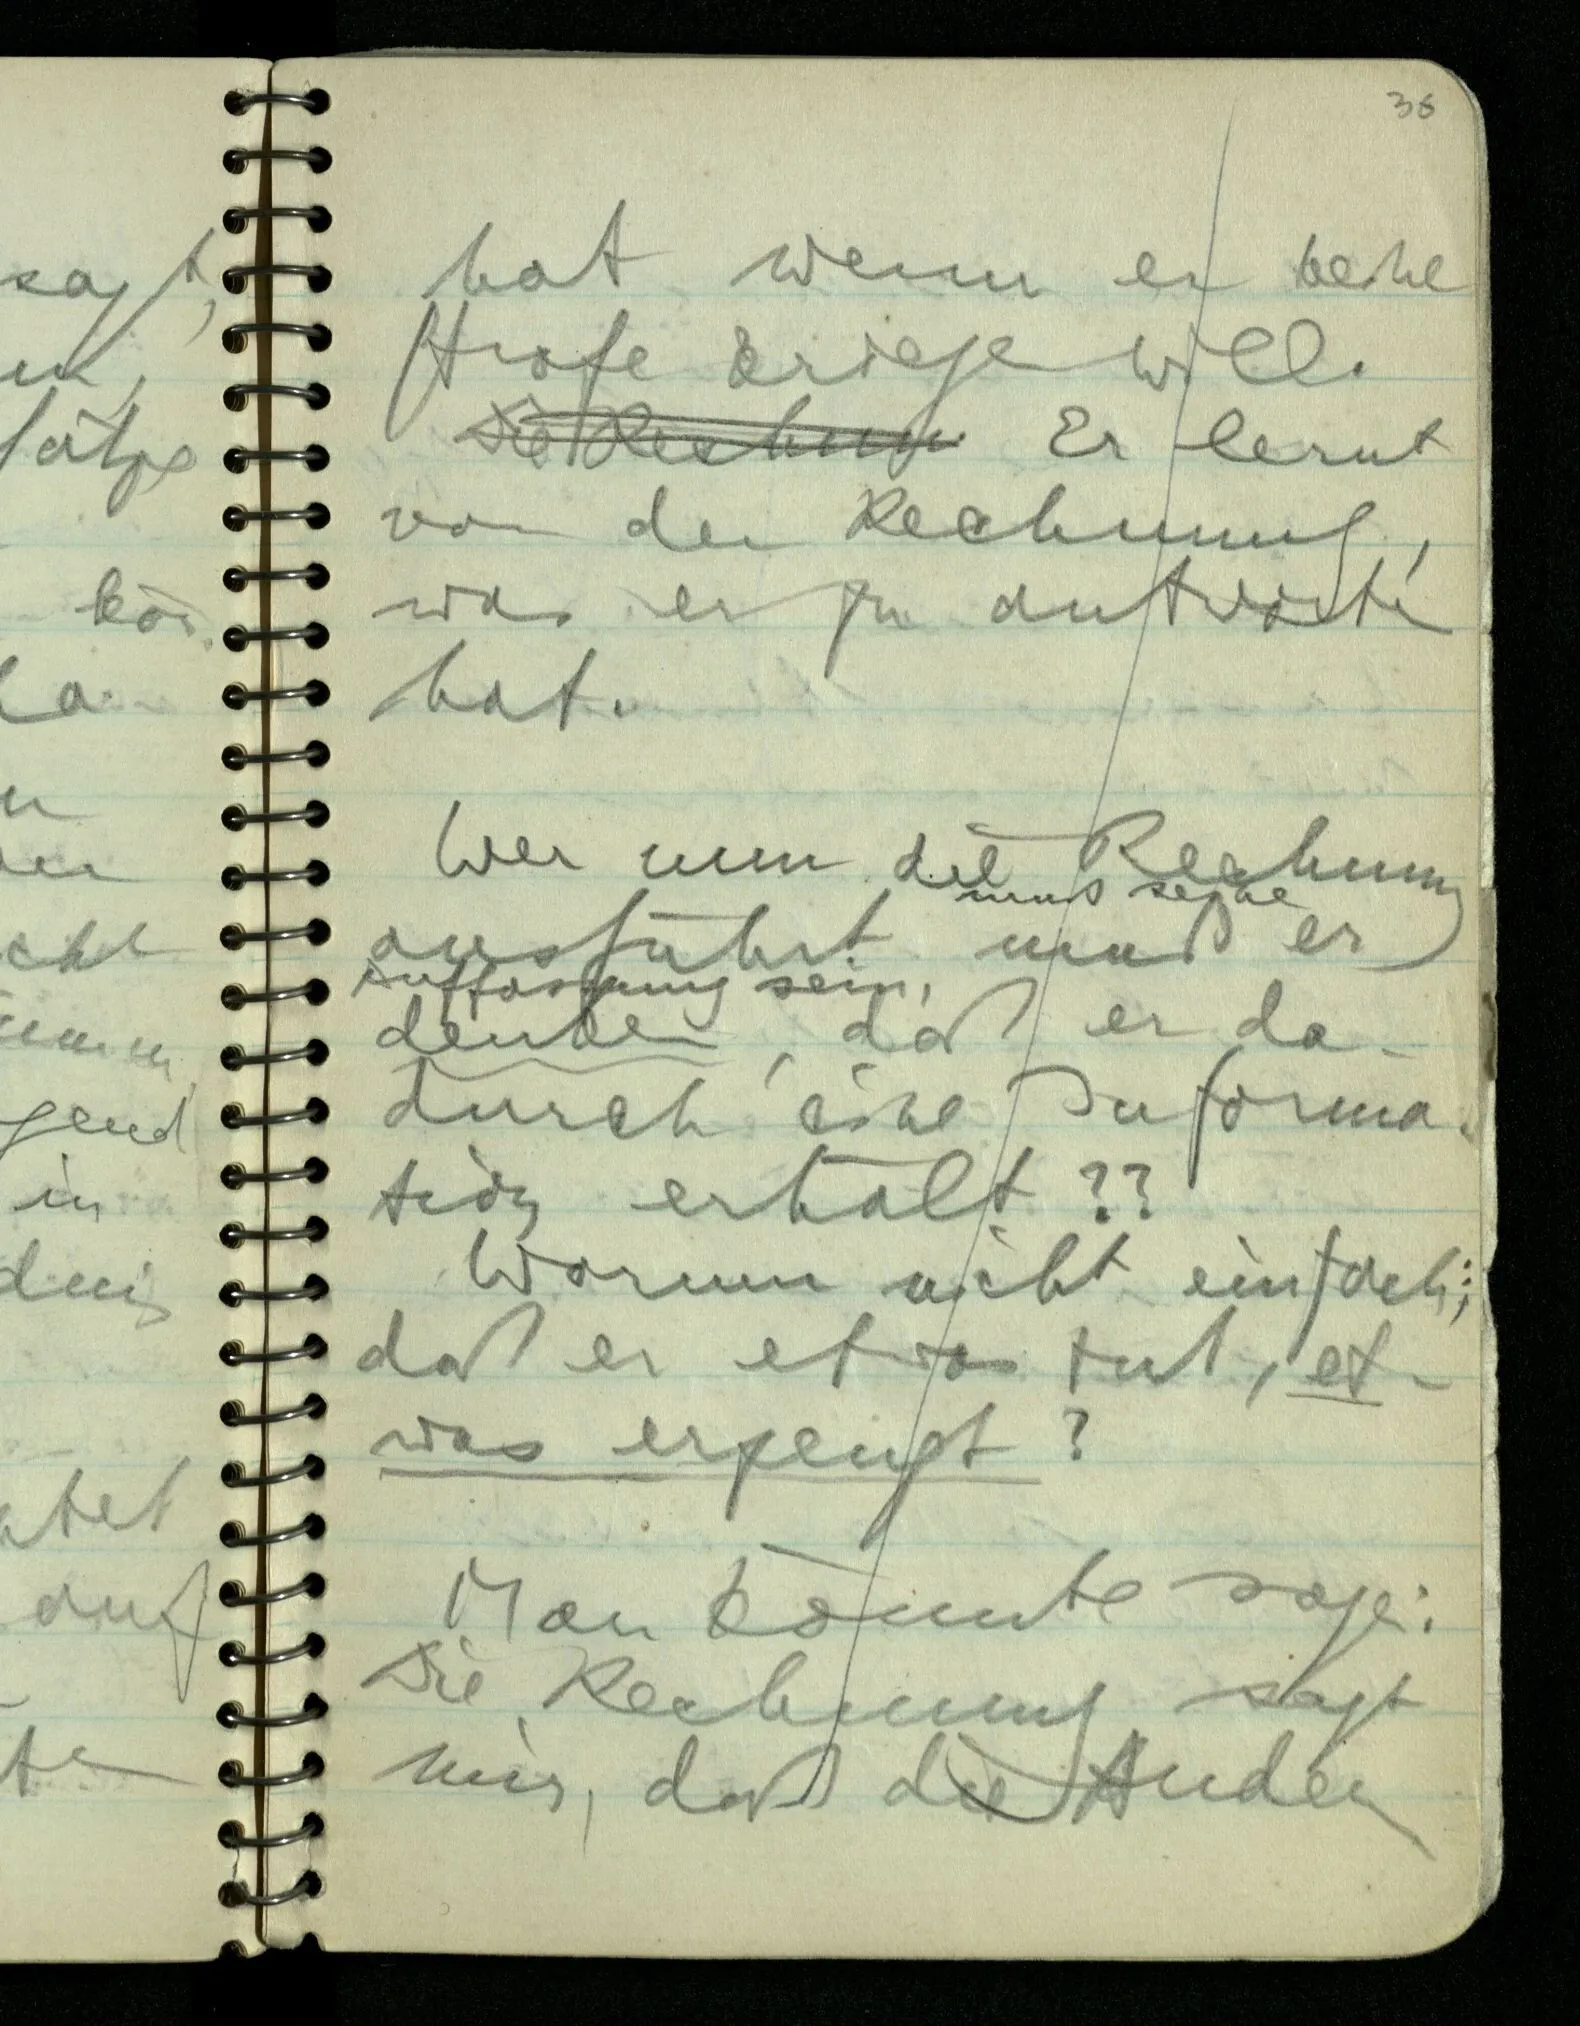 36
sagt,
hat wenn er keine
Strafe kriegen will.
Die Rechnung Er lernt
Sätze
von der Rechnung,
was er zu antworten
hat.
Wer nun die Rechnung
muß seine
ausführt muß er
Auffassung sein,
denken, daß er da-
durch eine Informa-
gend
tion erhält??
in
Warum nicht einfach;
daß er etwas tut, et-
was erzeugt?
Man könnte sagen:
auf
Die Rechnung sagt
mir, daß die Andern